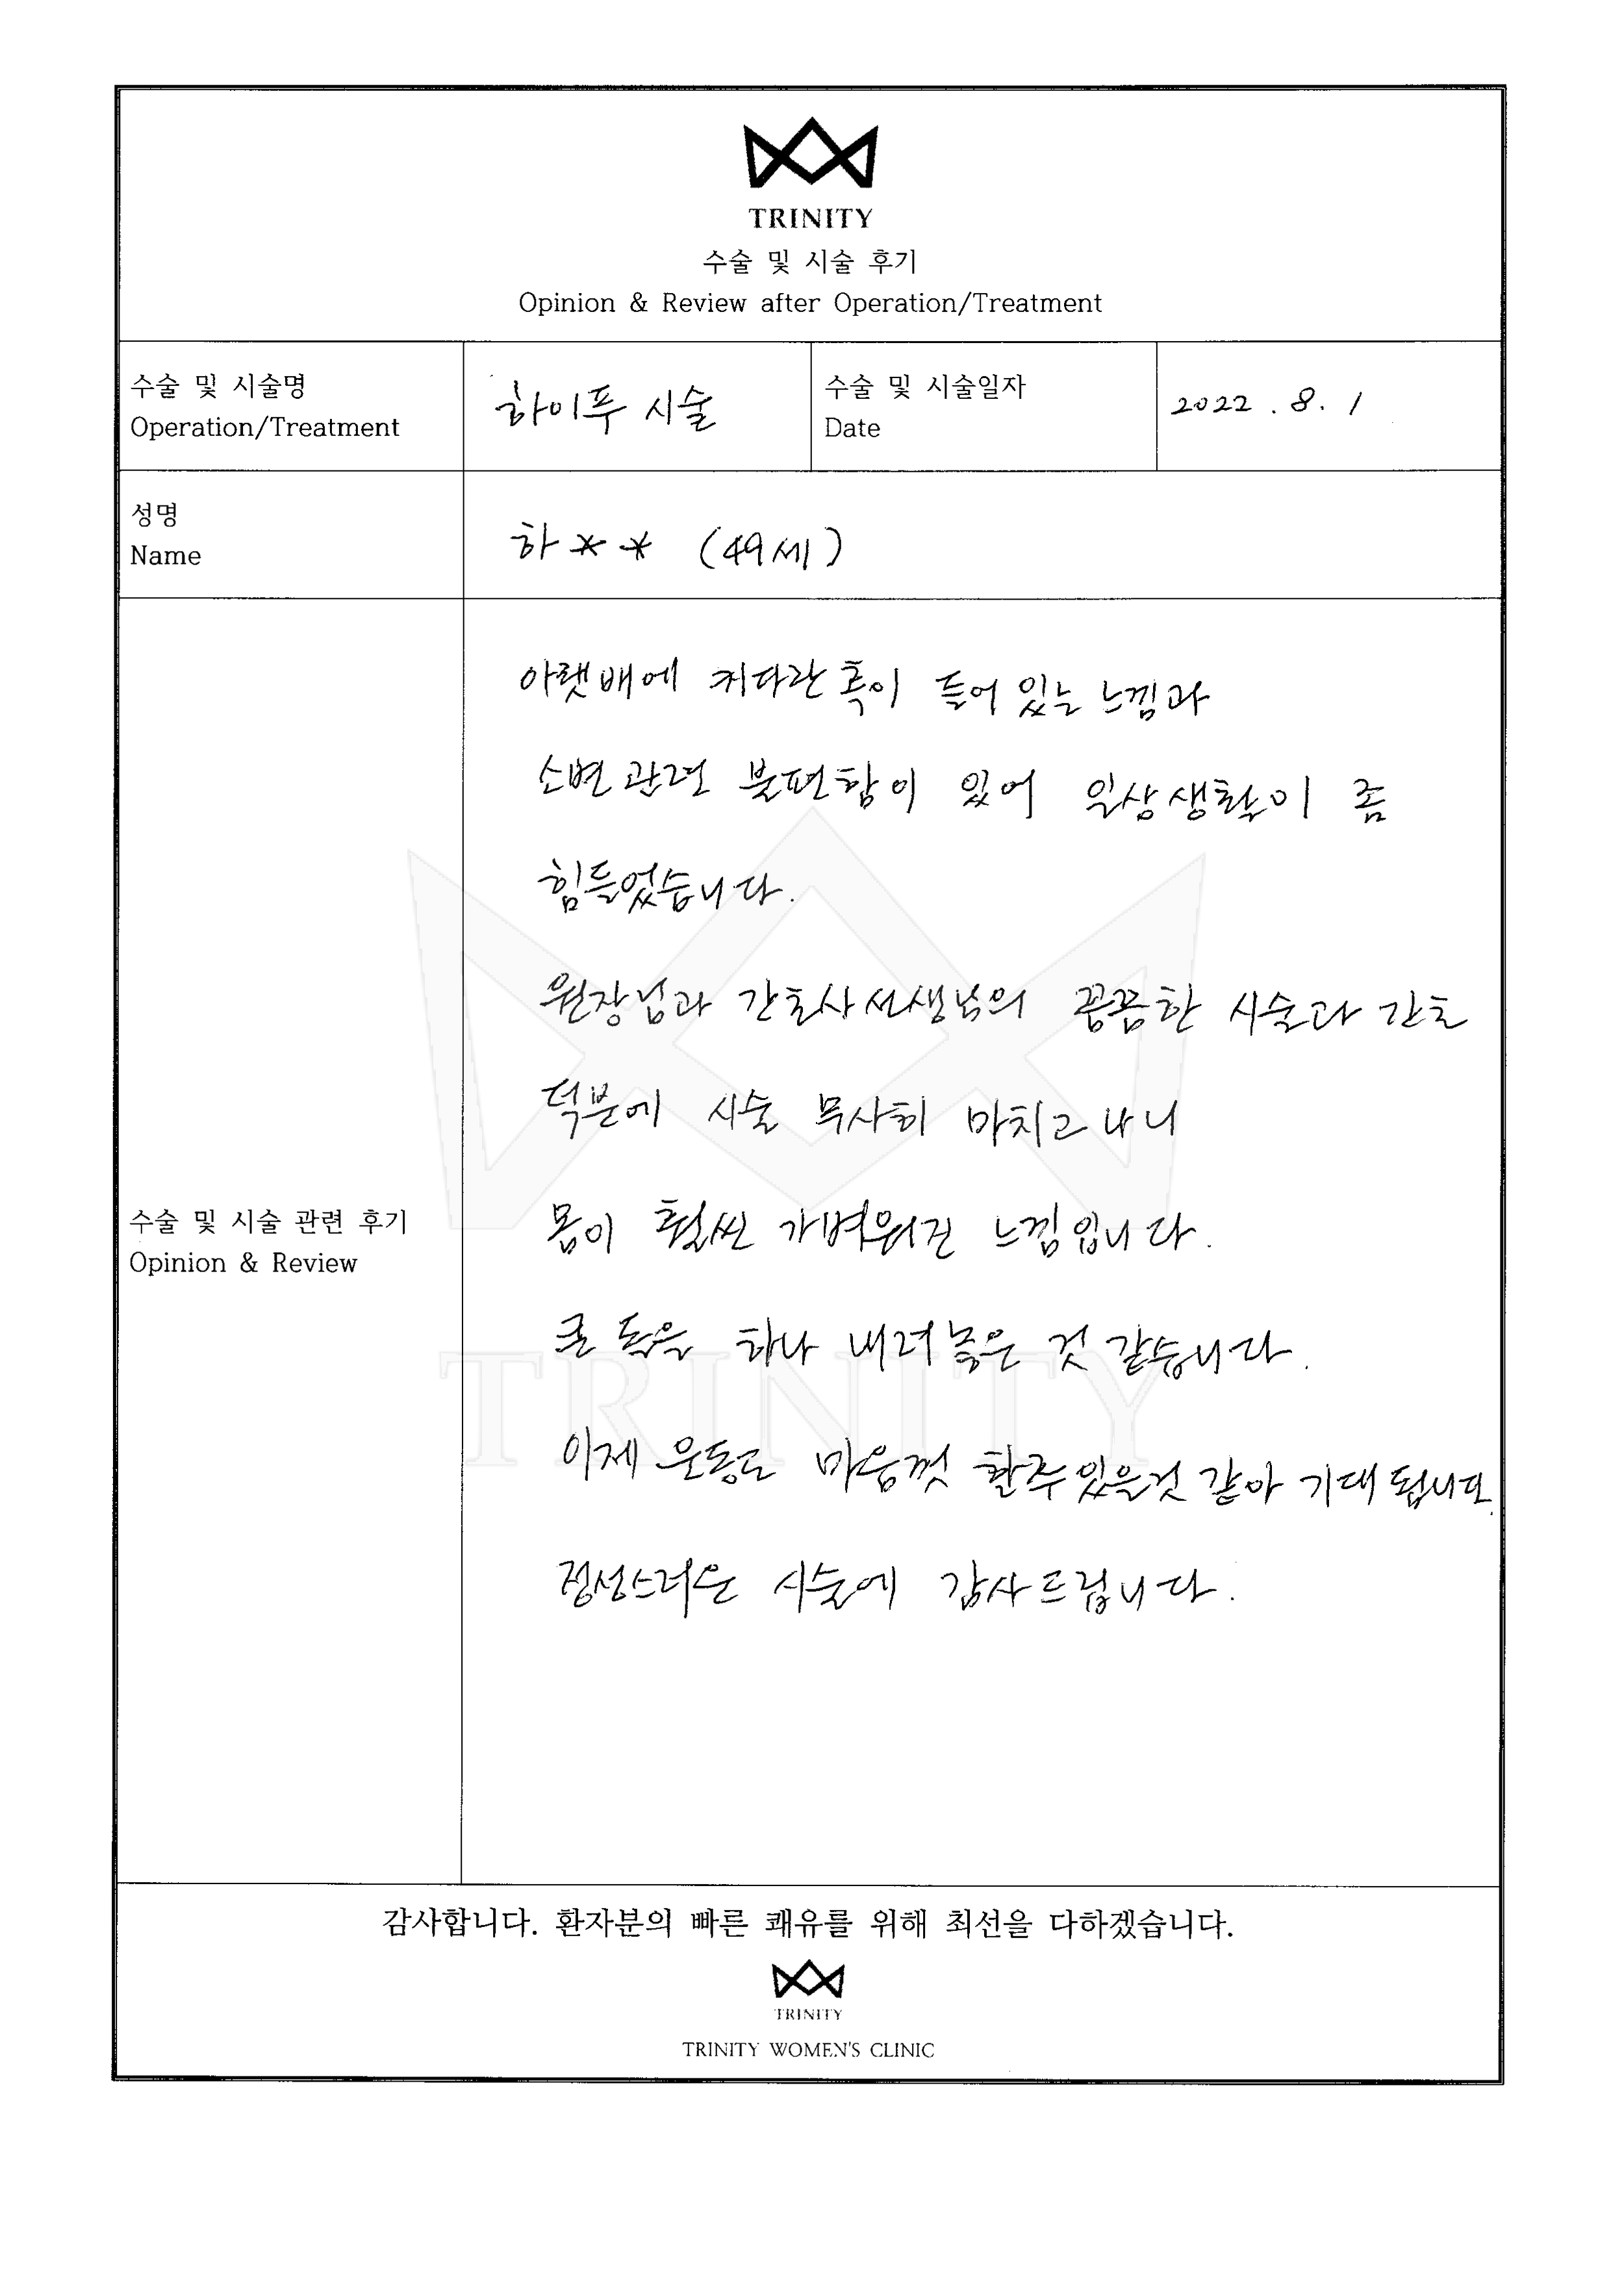 TRINITY
수술 및 시술 후기
Opinion & Review after Operation/Treatment
수술 및 시술명
Operation/Treatment
하이푸 시술
수술 및 시술일자
Date
2022 . 8. 1
성명
Name
하** (49세)
수술 및 시술 관련 후기
Opinion & Review
아랫배에 커다란 혹이 들어 있는 느낌과
소변 관련 불편함이 있어 일상생활이 좀
힘들었습니다.
원장님과 간호사선생님의 꼼꼼한 시술과 간호
덕분에 시술 무사히 마치고 나니
몸이 훨씬 가벼워진 느낌입니다.
큰 돌을 하나 내려놓은 것 같습니다.
이제 운동도 마음껏 할수있을것 같아 기대됩니다.
정성스러운 시술에 감사드립니다.
TRINITY
감사합니다. 환자분의 빠른 쾌유를 위해 최선을 다하겠습니다.
TRINITY
TRINITY WOMEN'S CLINIC